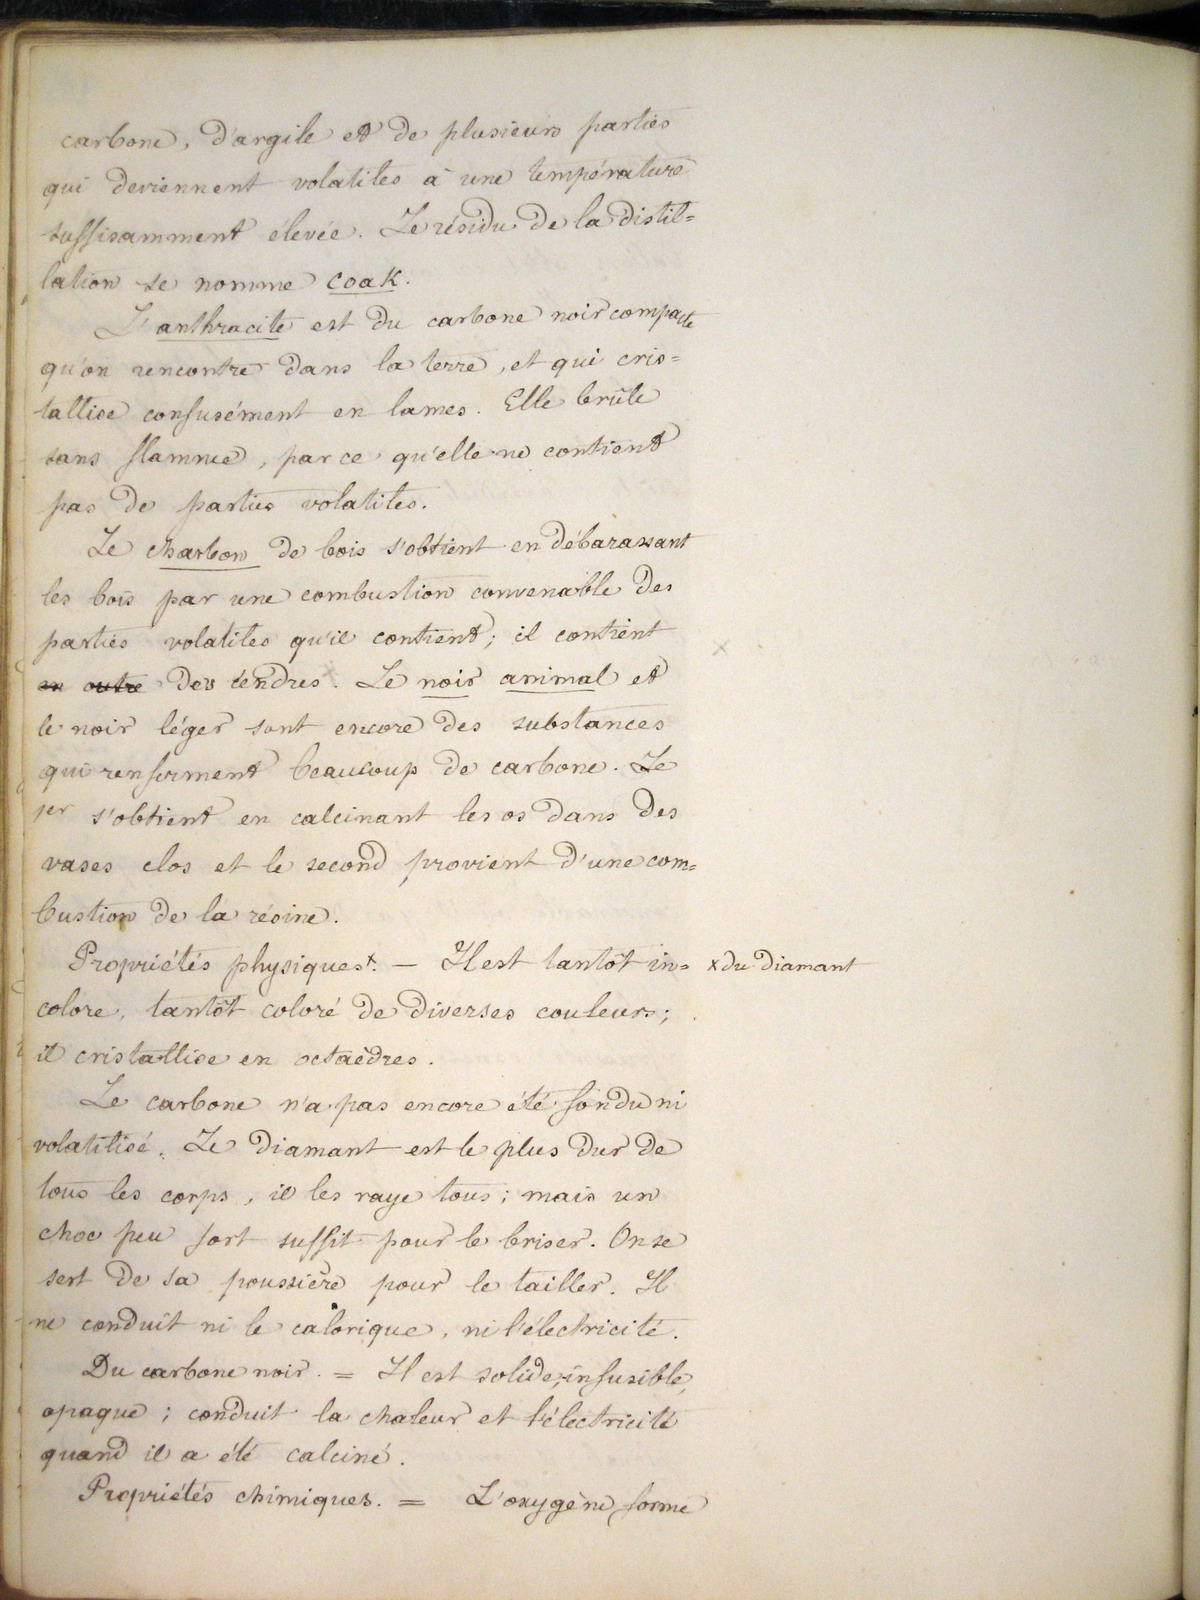 carbone, d'argile et de plusieurs parties
qui deviennent volatiles à une température
suffisamment élevée. Le résidu de la distil=
lation se nomme coak.
L'anthracite est du carbone noir compacte
qu'on rencontre dans la terre, et qui cris=
tallise confusément en lames. Elle brûle
sans flamme, par ce qu'elle ne contient
pas de parties volatiles.
Le charbon de bois s'obtient en débarassant
les bois par une combustion convenable des
parties volatiles qu'il contient; il contient
en outre des cendres. Le noir animal et
le noir léger sont encore des substances
qui renferment beaucoup de carbone. Le
1er s'obtient en calcinant les os dans des
vases clos et le second provient d'une com=
bustion de la résine.
Propriétés physiques x. — Il est tantôt in= x du diamant
colore, tantôt coloré de diverses couleurs;
il cristallise en octaèdres.
Le carbone n'a pas encore été fondu ni
volatilisé. Le diamant est le plus dur de
tous les corps, il les raye tous; mais un
choc peu fort suffit pour le briser. On se
sert de sa poussière pour le tailler. Il
ne conduit ni le calorique, ni l'électricité.
Du carbone noir. = Il est solide, infusible,
opaque; conduit la chaleur et l'électricité
quand il a été calciné.
Propriétés chimiques. = L'oxygène forme